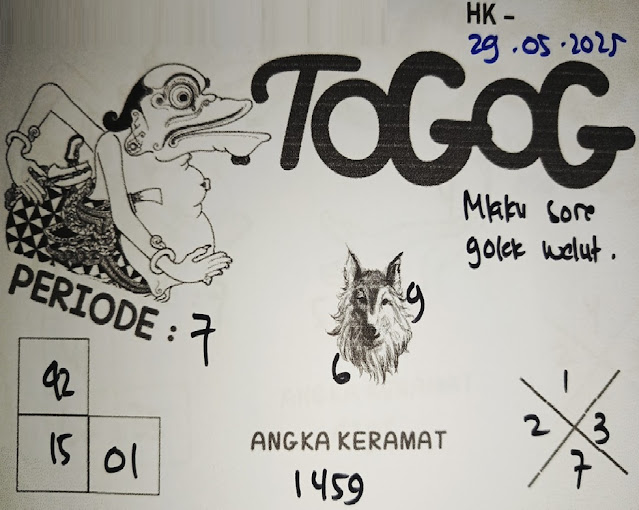 HK -
29.05.2025
TOGOG
Mlaku sore
golek welut.
PERIODE : 7
9
6
42
15 01
ANGKA KERAMAT
1459
1
2 3
7